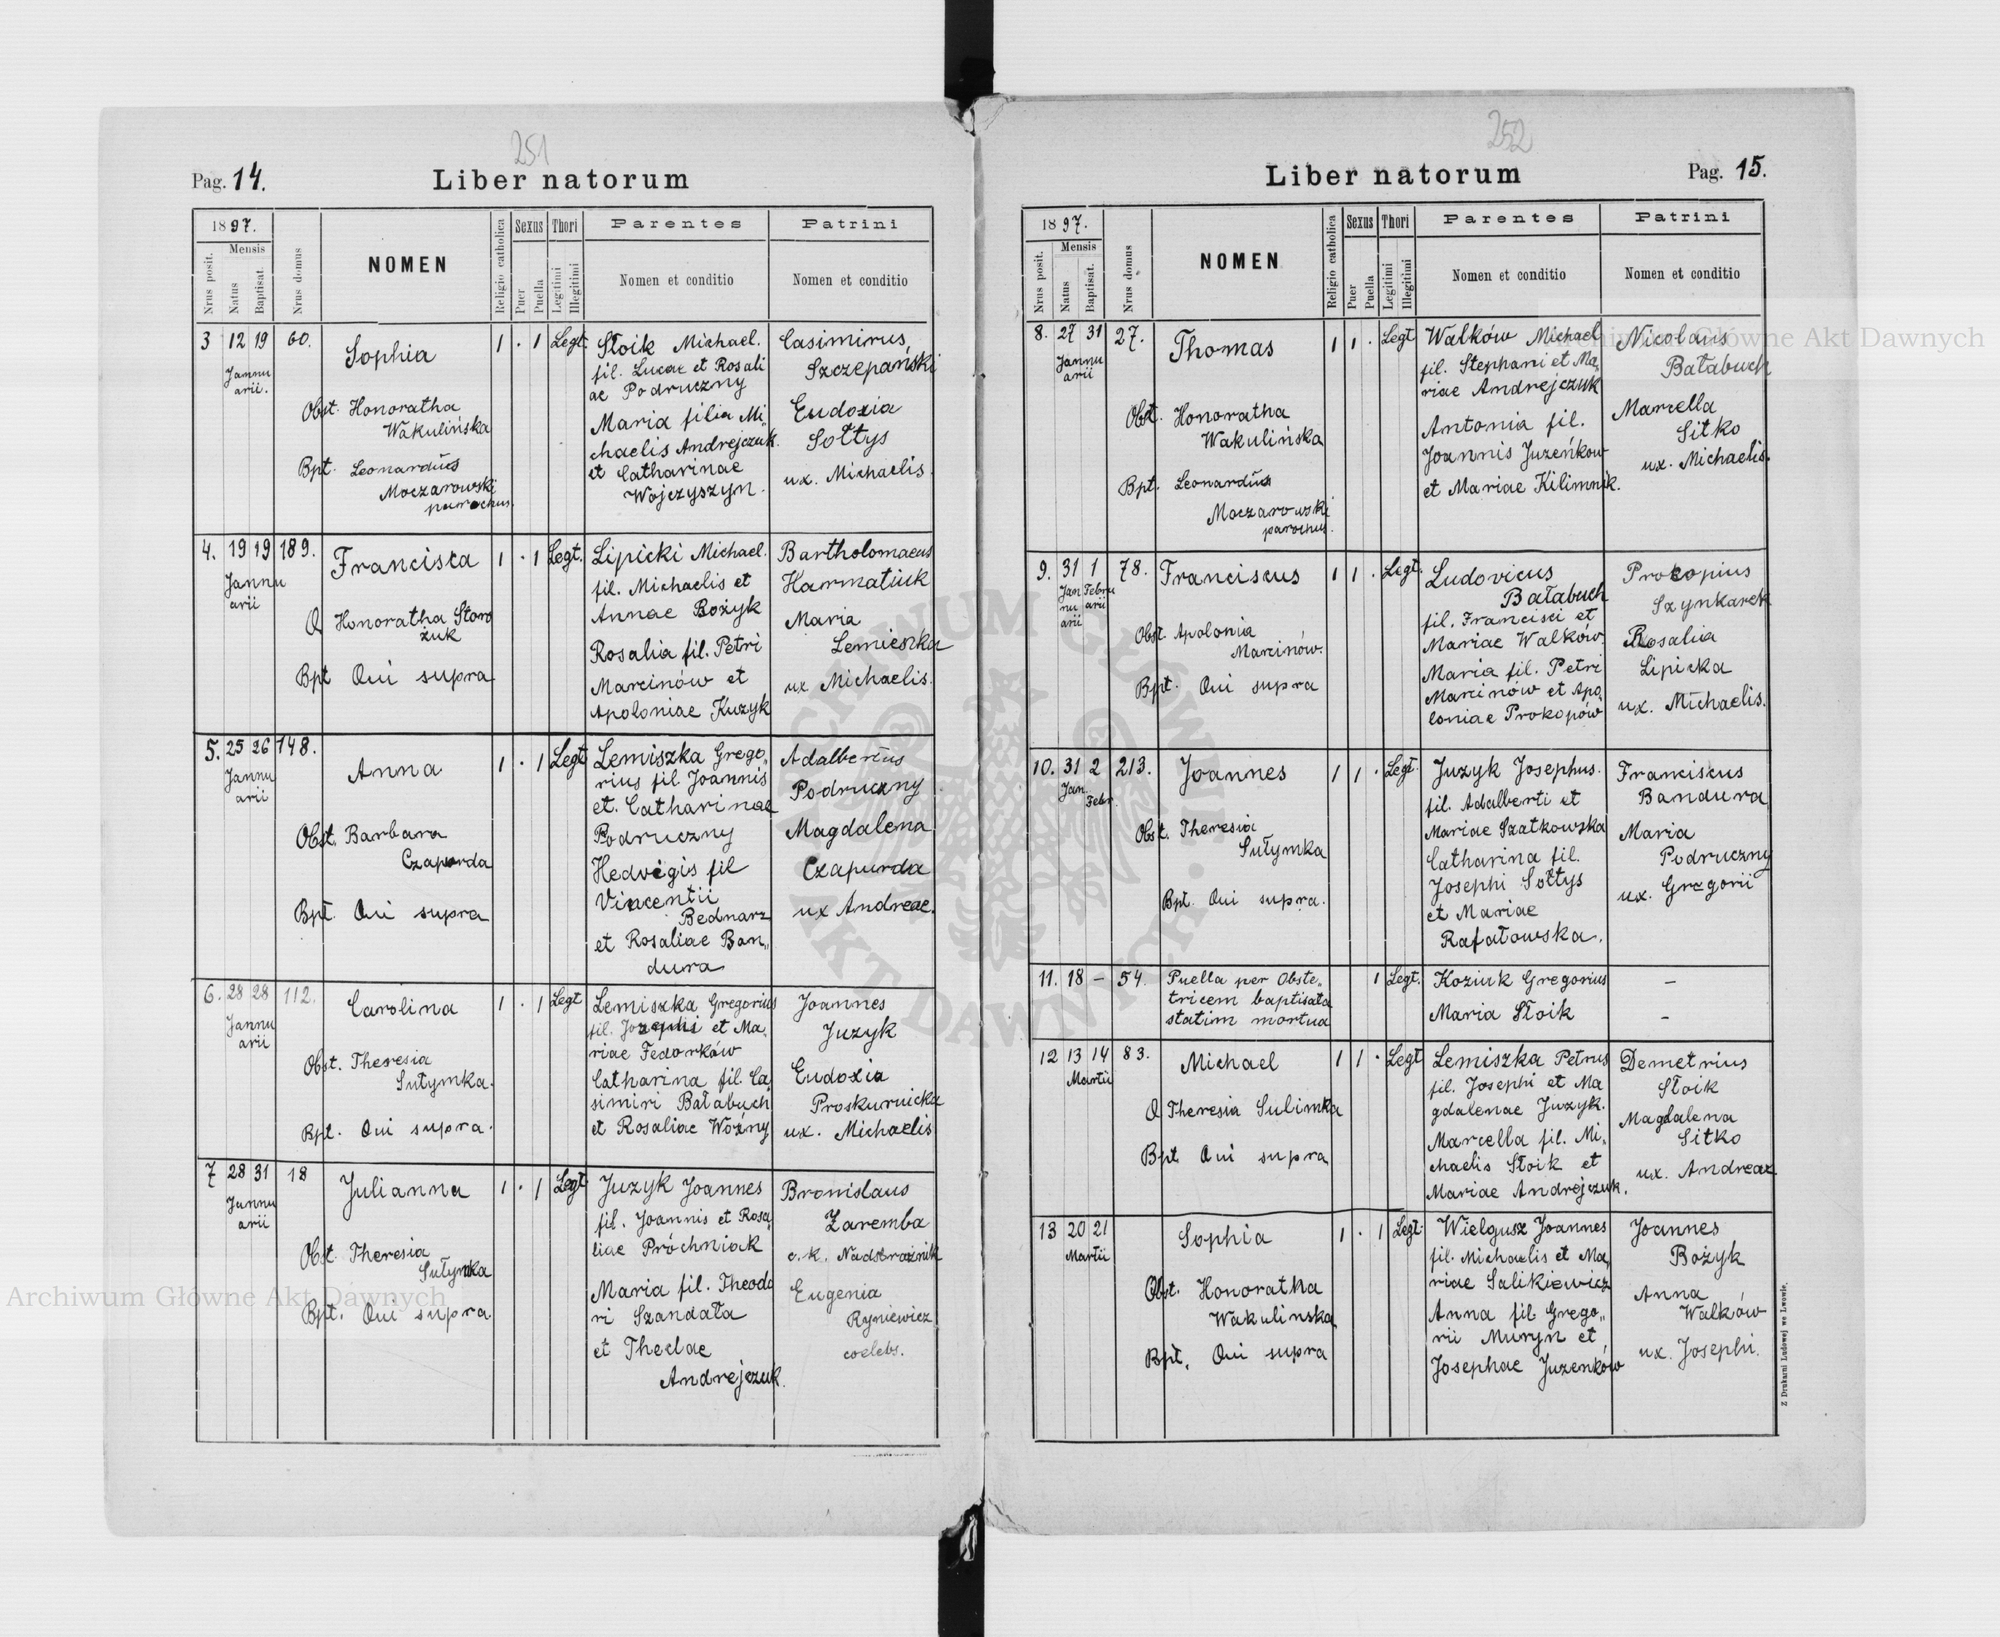 251
Pag. 14.
Liber natorum
1897.
Nrus posit.
Mensis
Natus
Baptisat.
Nrus domus
NOMEN
Religio catholica
Sexus
Puer
Puella
Thori
Legitimi
Illegitimi
Parentes
Nomen et conditio
Patrini
Nomen et conditio
3 12 19 60.
Jannu
arii.
Sophia
Obst. Honoratha
Wakulińska
Bpt. Leonardus
Moczarowski
parochus.
1 . 1 Legt.
Stoik Michael.
fil. Lucae et Rosali
ae Podruczny
Maria filia Mi,
chaelis Andrejczuk.
et Catharinae
Wojczyszyn.
Casimirus,
Szczepański
Eudoxia
Sołtys
ux. Michaelis.
4. 19 19 189.
Jannu
arii
Francisca
O Honoratha Storo
żuk
Bpt Qui supra
1 . 1 Legt.
Lipicki Michael.
fil. Michaelis et
Annae Bożyk
Rosalia fil. Petri
Marcinów et
Apoloniae Kuzyk
Bartholomaeus
Harmatiuk
Maria
Lemieszka
ux Michaelis.
5. 25 26 148.
Jannu
arii
Anna
Obst. Barbara
Czapurda
Bpt. Qui supra
1 . 1 Legt
Lemiszka Grego,,
rius fil Joannis
et. Catharinae
Podruczny
Hedvigis fil
Vincentii
Bednarz
et Rosaliae Ban,,
dura
Adalbertus
Podruczny
Magdalena
Czapurda
ux Andreae.
6. 28 28 112.
Jannu
arii
Carolina
Obst. Theresia
Sułymka.
Bpt. Qui supra.
1 . 1 Legt
Lemiszka Gregorius
fil. Josephi et Ma,
riae Fedorków
Catharina fil. Ca
simiri Bałabuch
et Rosaliae Wózny
Joannes
Juzyk
Eudoxia
Proskurnicka
ux. Michaelis
7 28 31 18
Jannu
arii
Julianna
Obst. Theresia
Sułymka
Bpt. Qui supra
1 . 1 Legt
Juzyk Joannes
fil. Joannis et Rosa,
liae Próchniak
Maria fil. Theodo
ri Szandała
et Theclae
Andrejczuk.
Bronislaus
Zaremba
c.k. Nadstrażnik
Eugenia
Ryniewicz
coelebs.
252
Liber natorum
Pag. 15.
1897.
Nrus posit.
Mensis
Natus
Baptisat.
Nrus domus
NOMEN
Religio catholica
Sexus
Puer
Puella
Thori
Legitimi
Illegitimi
Parentes
Nomen et conditio
Patrini
Nomen et conditio
8. 27 31 27.
Jannu
arii
Thomas
Obst. Honoratha
Wakulińska
Bpt. Leonardus
Moczarowski
parochus.
1 1 . Legt
Walków Michael
fil. Stephani et Ma,
riae Andrejczuk
Antonia fil.
Joannis Juzeńkow
et Mariae Kilimnik.
Nicolaus
Bałabuch
Marcella
Sitko
ux. Michaelis.
9. 31 1 78.
Jan
nu
arii
Febru
arii
Franciscus
Obst. Apolonia
Marcinów.
Bpt. Qui supra
1 1 . Legt.
Ludovicus
Bałabuch
fil. Francisci et
Mariae Walków.
Maria fil. Petri
Marcinów et Apo,
loniae Prokopów
Procopius
Szynkarek
Rosalia
Lipicka
ux. Michaelis.
10. 31 2 213.
Jan.
Febr.
Joannes
Obst. Theresia
Sułymka
Bpt. Qui supra.
1 1 . Legt.
Juzyk Josephus.
fil. Adalberti et
Mariae Szatkowska
Catharina fil.
Josephi Sołtys
et Mariae
Rafałowska.
Franciscus
Bandura
Maria
Podruczny
ux. Gregorii
11. 18 – 54.
Puella per Obste,,
tricem baptisata
statim mortua
1 Legt.
Koziuk Gregorius
Maria Stoik
–
–
12 13 14 83.
Martii
Michael
O Theresia Sulimka
Bpt Qui supra
1 1 . Legt
Lemiszka Petrus
fil. Josephi et Ma
gdalenae Juzyk.
Marcella fil. Mi,
chaelis Stoik et
Mariae Andrejczuk.
Demetrius
Stoik
Magdalena
Sitko
ux. Andreae
13 20 21
Martii
Sophia
Obst. Honoratha
Wakulinska
Bpt. Qui supra
1 . 1 Legt.
Wielgusz Joannes
fil. Michaelis et Ma,
riae Salikiewicz
Anna fil Grego,,
rii Muryn et
Josephae Juzenków
Joannes
Bożyk
Anna
Walków
ux. Josephi.
Z Drukarni Ludowej we Lwowie.
Archiwum Główne Akt Dawnych
Archiwum Główne Akt Dawnych
ARCHIWUM GŁÓWNE AKT DAWNYCH